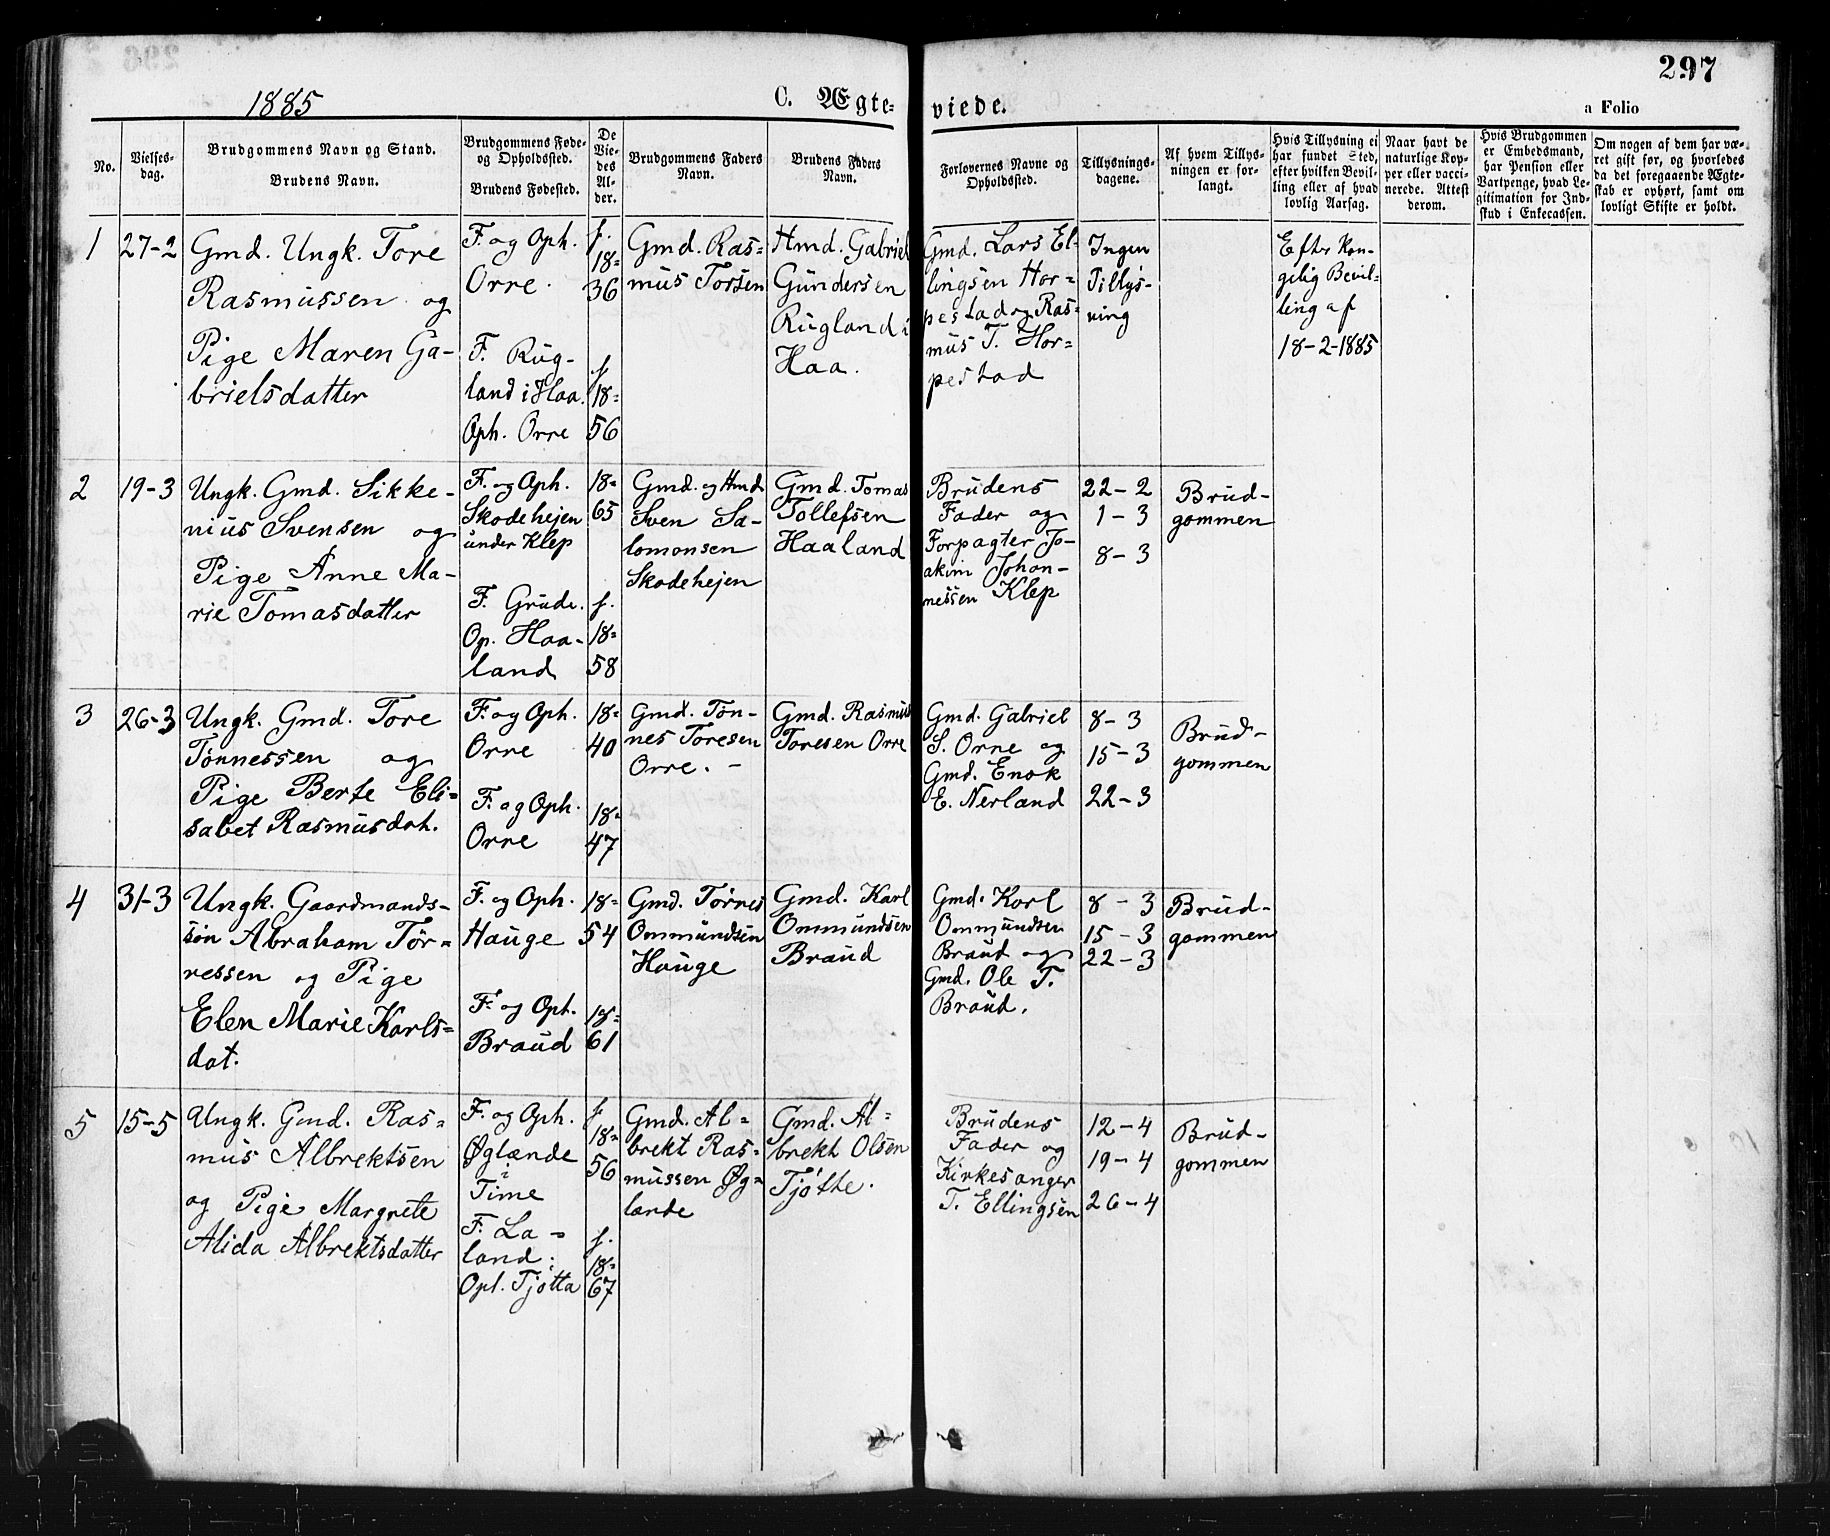 297
1885
C. Ægte=
viede.
a Folio
No.
Vielses-
dag.
Brudgommens Navn og Stand.
Brudens Navn.
Brudgommens Føde-
og Opholdssted.
Brudens Fødested.
De
Vie-
des
Al-
der.
Brudgommens Faders
Navn.
Brudens Faders
Navn.
Forlovernes Navne og
Opholdssted.
Tillysnings-
dagene.
Af hvem Tillys-
ningen er for-
langt.
Hvis Tillysning ei
har fundet Sted,
efter hvilken Bevil-
ling eller af hvad
lovlig Aarsag.
Naar havt de
naturlige Kop-
per eller vacci-
nerede. Attest
derom.
Hvis Brudgommen
er Embedsmand,
har Pension eller
Vartpenge, hvad Le-
gitimation for Ind-
skud i Enkecassen.
Om nogen af dem har væ-
ret gift før, og hvorledes
da det foregaaende Ægte-
skab er ophørt, samt om
lovligt Skifte er holdt.
1
27-2
Gmd. Ungk. Tore
Rasmussen og
Pige Maren Ga-
brielsdatter
F. og Oph.
Orre.
F. Rug-
land i Haa.
Oph. Orre
f.
18=
36
f.
18=
56
Gmd. Ras=
mus Torsen
Hmd. Gabriel
Gundersen
Rugland i
Haa.
Gmd. Lars El-
lingsen Hor=
pestad og Ras=
mus T. Hor=
pestad
Ingen
Tillys-
ning
Efter Kon-
gelig Bevil-
ling af
18-2-1885
2
19-3
Ungk. Gmd. Sikke-
nius Svensen og
Pige Anne Ma-
rie Tomasdatter
F. og Oph.
Skodehejen
under Klep
F. Grude.
Op. Haa-
land
18=
65
f.
18=
58
Gmd. og Hmd.
Sven Sa-
lomonsen
Skodehejen
Gmd. Tomas
Tollefsen
Haaland
Brudens
Fader og
Forpagter Jo-
akim Johan-
nessen Klep
22-2
1-3
8-3
Brud-
gommen
3
26-3
Ungk. Gmd. Tore
Tønnessen og
Pige Berte Eli-
sabet Rasmusdat.
F. og Oph.
Orre
F. og Oph.
Orre
18=
40
18=
47
Gmd. Tøn-
nes Toresen
Orre. -
Gmd. Rasmus
Toresen Orre
Gmd. Gabriel
S. Orre og
Gmd. Enok
E. Nerland
8-3
15-3
22-3
Brud-
gommen
4
31-3
Ungk. Gaardmands-
søn Abraham Tør-
ressen og Pige
Elen Marie Karls=
dat.
F. og Oph.
Hauge
F. og Oph.
Braud
18=
54
18=
61
Gmd. Tørres
Ommundsen
Hauge
Gmd. Karl
Ommundsen
Braud
Gmd. Karl
Ommundsen
Braud og
Gmd. Ole T.
Braud.
8-3
15-3
22-3
Brud-
gommen
5
15-5
Ungk. Gmd. Ras=
mus Albrektsen
og Pige Margrete
Alida Albrektsdatter
F. og Oph.
Øglænde
i
Time
F. La-
land.
Opl. Tjøtta
f
18=
56
f.
18=
67
Gmd. Al=
brekt Ras=
mussen Øg=
lænde
Gmd. Al=
brekt Olsen
Tjøtte.
Brudens
Fader og
Kirkesanger
T. Ellingsen
12-4
19-4
26-4
Brud-
gommen